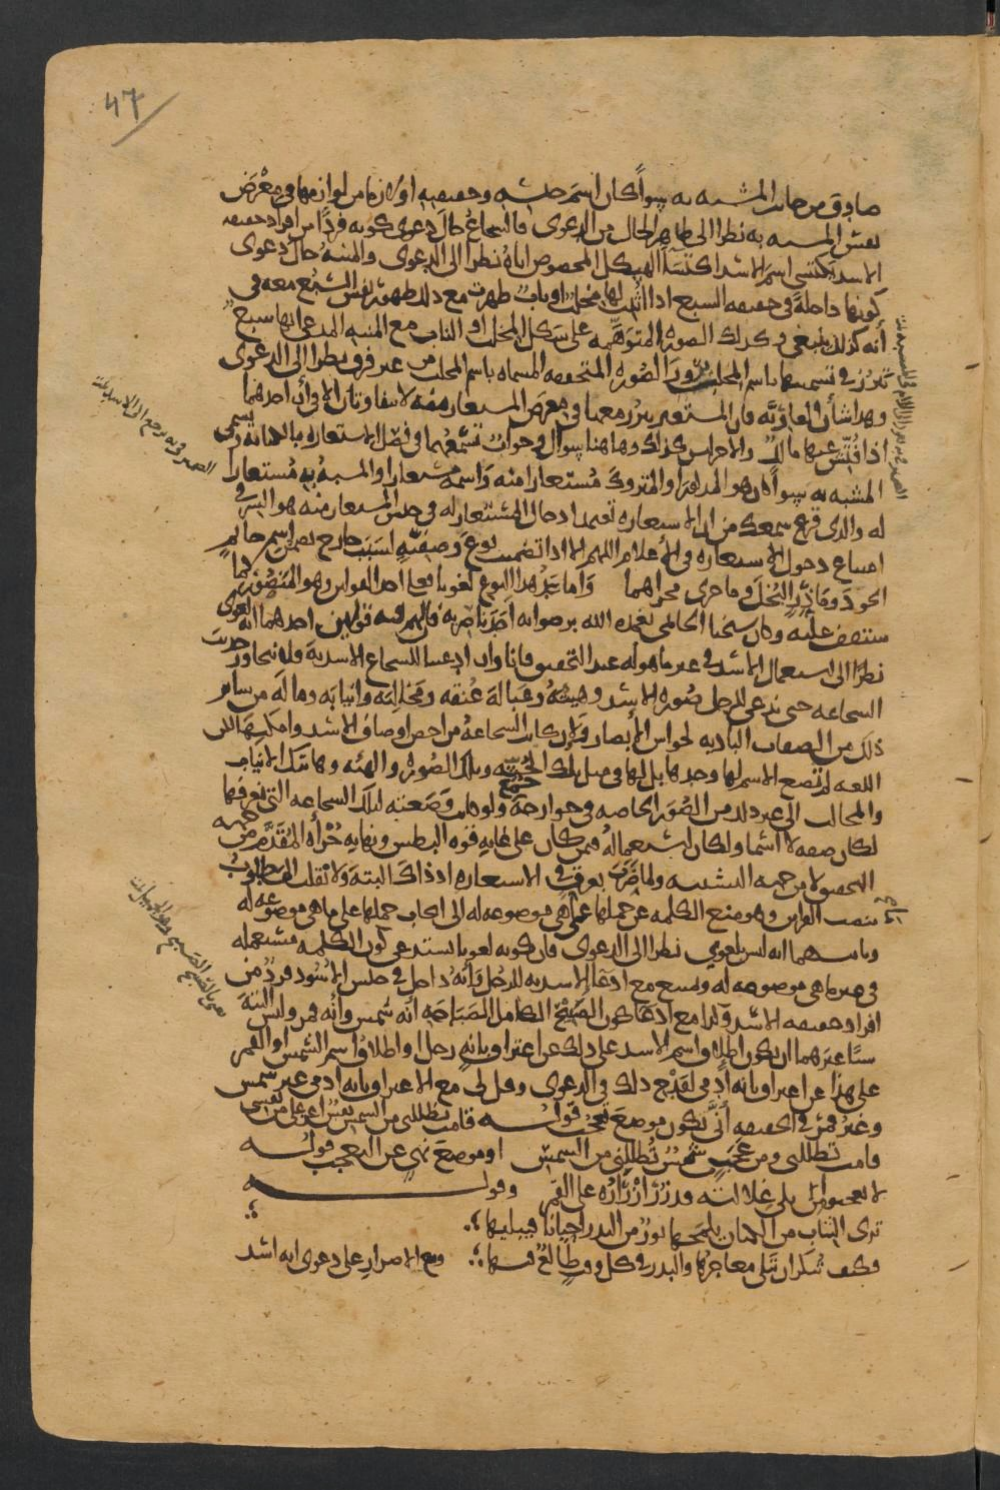 47
صادق من جانب المشبه به سواء كان اسم جنسه وحقيقته او لازما من لوازمها في معرض
نفس المشبه به نظرا الى ظاهر الحال من الدعوى فالشجاع حال دعوى كونه فردا من افراد حقيقة
الاسد يكتسي اسم الاسد اكتساء الهيكل المخصوص اياه نظرا الى الدعوى والمنية حال دعوى
كونها داخلة في حقيقة السبع اذا اثبت لها مخلب او ناب ظهرت مع ذلك ظهور نفس السبع معه في
أنه كذلك ينبغي وكذلك الصورة المتوهمة على شكل المخلب او الناب مع المنية المدعى انها سبع
تبرز في تسميتها باسم المخلب بروز الصورة المتحققة المسماة باسم المخلب من غير فرق نظرا الى الدعوى
وهذا شأن العارية فان المستعير يبرز معها في معرض المستعار منه لا يتفاوتان الا في أن احدهما
اذا فتش عنها مالك والاخر ليس كذلك وهاهنا سؤال وجواب تسمعهما في فصل الاستعارة بالكناية ويسمى
المشبه به سواء كان هو المذكور او المتروك مستعارا منه واسمه مستعارا والمشبه به مستعارا
له والذي قرع سمعك من ان الاستعارة تعتمد ادخال المستعار له في جنس المستعار منه هو السر في
امتناع دخول الاستعارة في الأعلام اللهم الا اذا تضمنت نوع وصفية لسبب خارج تضمن اسم حاتم
الجود ومادر البخل وما جرى مجراهما واما عد هذا النوع لغويا فعلى احد القولين وهو المنصور كما
ستقف عليه وكان شيخنا الحاتمي تغمده الله برضوانه احد ناصريه فان لهم فيه قولين احدهما انه لغوي
نظرا الى استعمال الاسد في غير ما هو له عند التحقيق فانا وان ادعينا للشجاع الاسدية فلا نتجاوز حديث
الشجاعة حتى ندعي للرجل صورة الاسد وهيئته وعبالة عنقه ومخالبه وانيابه وما له من سائر
ذلك من الصفات البادية لحواس الأبصار ولئن كانت الشجاعة من اخص اوصاف الاسد وامكنها لكن
اللغة لم تضع الاسم لها وحدها بل لها في مثل تلك الجثة وتلك الصورة والهيئة وهاتيك الانياب
والمخالب الى غير ذلك من الصور الخاصة في جوارحه جمع ولو كانت وضعته لتلك الشجاعة التي تعرفها
لكان صفة لا اسما ولكان استعماله فيمن كان على غاية قوة البطش ونهاية جرأة المقدم من جهة
التحقيق لا من جهة التشبيه ولما ضرب بعرق في الاستعارة اذ ذاك البتة ولانقلب المطلوب
بنصب القرائن وهو منع الكلمة عن حملها على ما هي موضوعة له الى ايجاب حملها على ما هي موضوعة له
وثانيهما انه ليس بلغوي نظرا الى الدعوى فان كونه لغويا يستدعي كون الكلمة مستعملة
في غير ما هي موضوعة له ويمتنع مع ادعاء الاسدية للرجل وأنه داخل في جنس الاسود فرد من
افراد حقيقة الاسد وكذا مع ادعاء كون الصبيح الكامل الصباحة أنه شمس وأنه قمر وليس البتة
شيئا غيرهما ان يكون اطلاق اسم الاسد على ذلك عن اعتراف بأنه رجل واطلاق اسم الشمس او القمر
على هذا عن اعتراف بأنه آدمي لقدح ذلك في الدعوى وقل لي مع الاعتراف بأنه ادمي غير شمس
وغير قمر في الحقيقة أنى يكون موضع تعجب قوله قامت تظللني من الشمس نفس اعز علي من نفسي
قامت تظللني ومن عجب شمس تظللني من الشمس او موضع نهي عن التعجب قوله
لا تعجبوا من بلى غلالته قد زر أزراره على القمر وقوله
ترى الثياب من الكتان يلمحها نور من البدر احيانا فيبليها
فكيف تنكر ان تبلى معاجرها والبدر في كل وقت طالع فيها ومع الاصرار على دعوى انه اسد
الضمير في به يرجع الى الاسدية